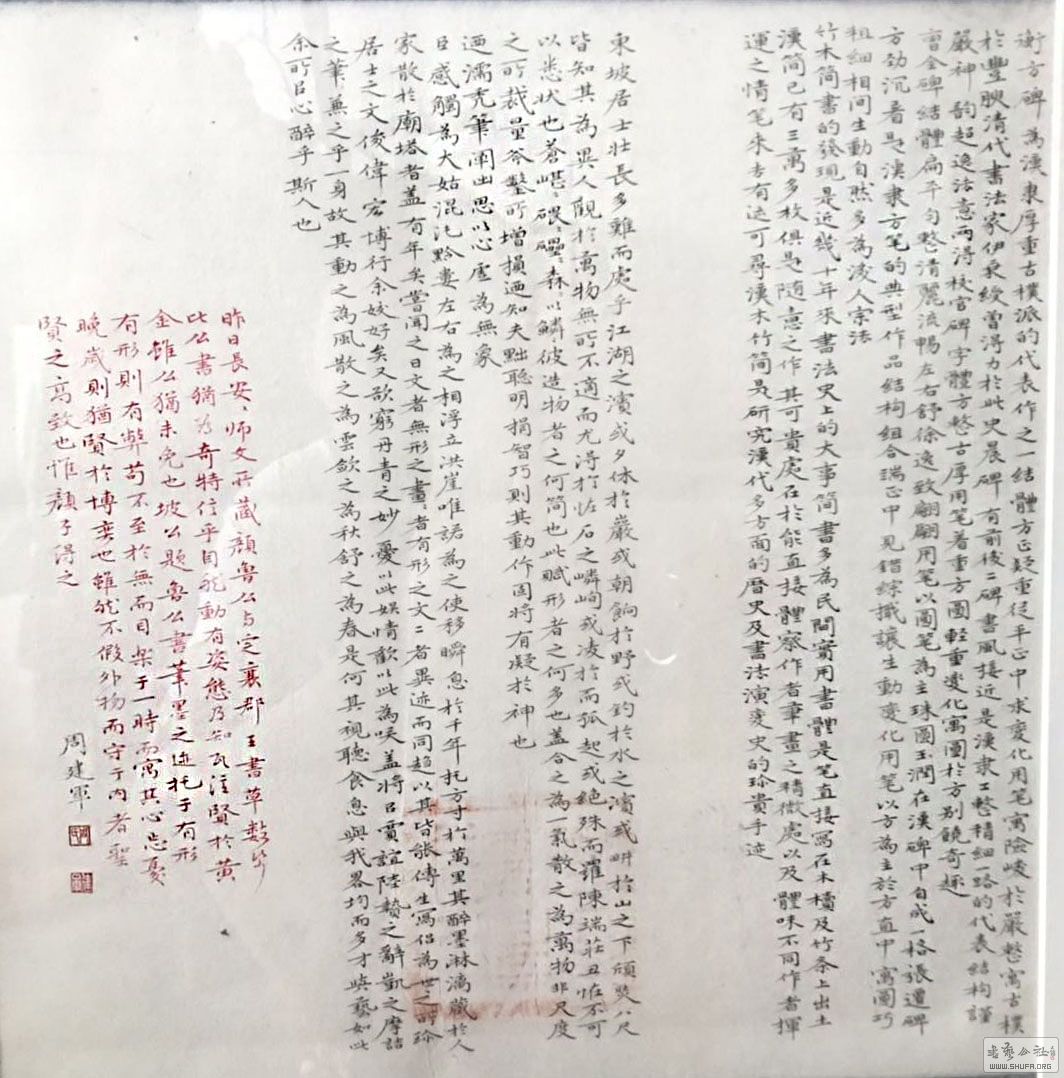 衡方碑為漢隸厚重古樸派的代表作之一結體方正凝重從平正中求變化用笔寓險峻於嚴整寓古樸
於豐腴清代書法家伊秉綬曾得力於此史晨碑有前後二碑書風接近是漢隸工整精细一路的代表結构謹
嚴神韵超逸法意两得校官碑字體方整古厚用笔着重方圆輕重变化寓圓於方别饒奇趣
曹全碑結體扁平匀整清麗流暢左右舒徐逸致翩翩用笔以圆笔為主珠圆玉潤在漢碑中自成一格張遷碑
方劲沉着是漢隸方笔的典型作品結构組合端正中見錯綜揖讓生動變化用笔以方為主於方直中寓圆巧
粗细相间生動自然多為後人宗法
竹木简書的發现是近幾十年來書法史上的大事简書多為民間實用書體是笔直接寫在木牘及竹条上出土
漢简已有三萬多枚俱是随意之作其可貴處在於能直接體察作者筆畫之精微處以及體味不同作者揮
運之情笔来去有迹可尋漢木竹简是研究漢代多方面的曆史及書法演变史的珍貴手迹
東坡居士壮長多難而處乎江湖之濱或夕休於巖或朝餉於野或钓於水之濱或畊於山之下頎然八尺
皆知其為異人觀於萬物無所不適而尤得於怪石之嶙峋或凌於而孤起或绝殊而羅陳端莊丑怪不可
以悉状也蒼嵁嵁碨碨礧礧森森以鳞鳞彼造物者之何简也此賦形者之何多也蓋合之為一氣散之為萬物非尺度
之所裁量斧鑿所增損廼知夫黜聪明捐智巧則其動作固將有凝於神也
廼濡秃筆闡出思以心虚為無象
㠯感觸為大姑混沌黔婁左右為之相浮立洪崖唯諾為之使移瞬息於千年托方寸於萬里其醉墨淋漓藏於人
家散於廟塔者蓋有年矣嘗聞之曰文者無形之畫畫者有形之文二者異迹而同趨以其皆能傳生寫侣為世之所珍
居士之文俊偉宏博行余姣好矣又欲窮丹青之妙憂以此娱情歡以此為咲蓋將㠯賈誼陸贄之辭凱之摩詰
之筆無之乎一身故其動之為風散之為雲歛之為秋舒之為春是何其視聽食息與我畧均而多才與藝如此
余所㠯心醉乎斯人也
昨日長安安师文所藏顔魯公与定襄郡王書草數紙
比公書猶為奇特信乎自然動有姿態乃知瓦注賢於黄
金雖公猶未免也坡公題魯公書筆墨之迹托于有形
有形則有弊苟不至於無而自樂于一時而寓其心忘憂
晚歲則猶賢於博奕也雖然不假外物而守于内者聖
賢之高致也惟顔子得之
周建軍
書藝公社
WWW.SHUFA.ORG